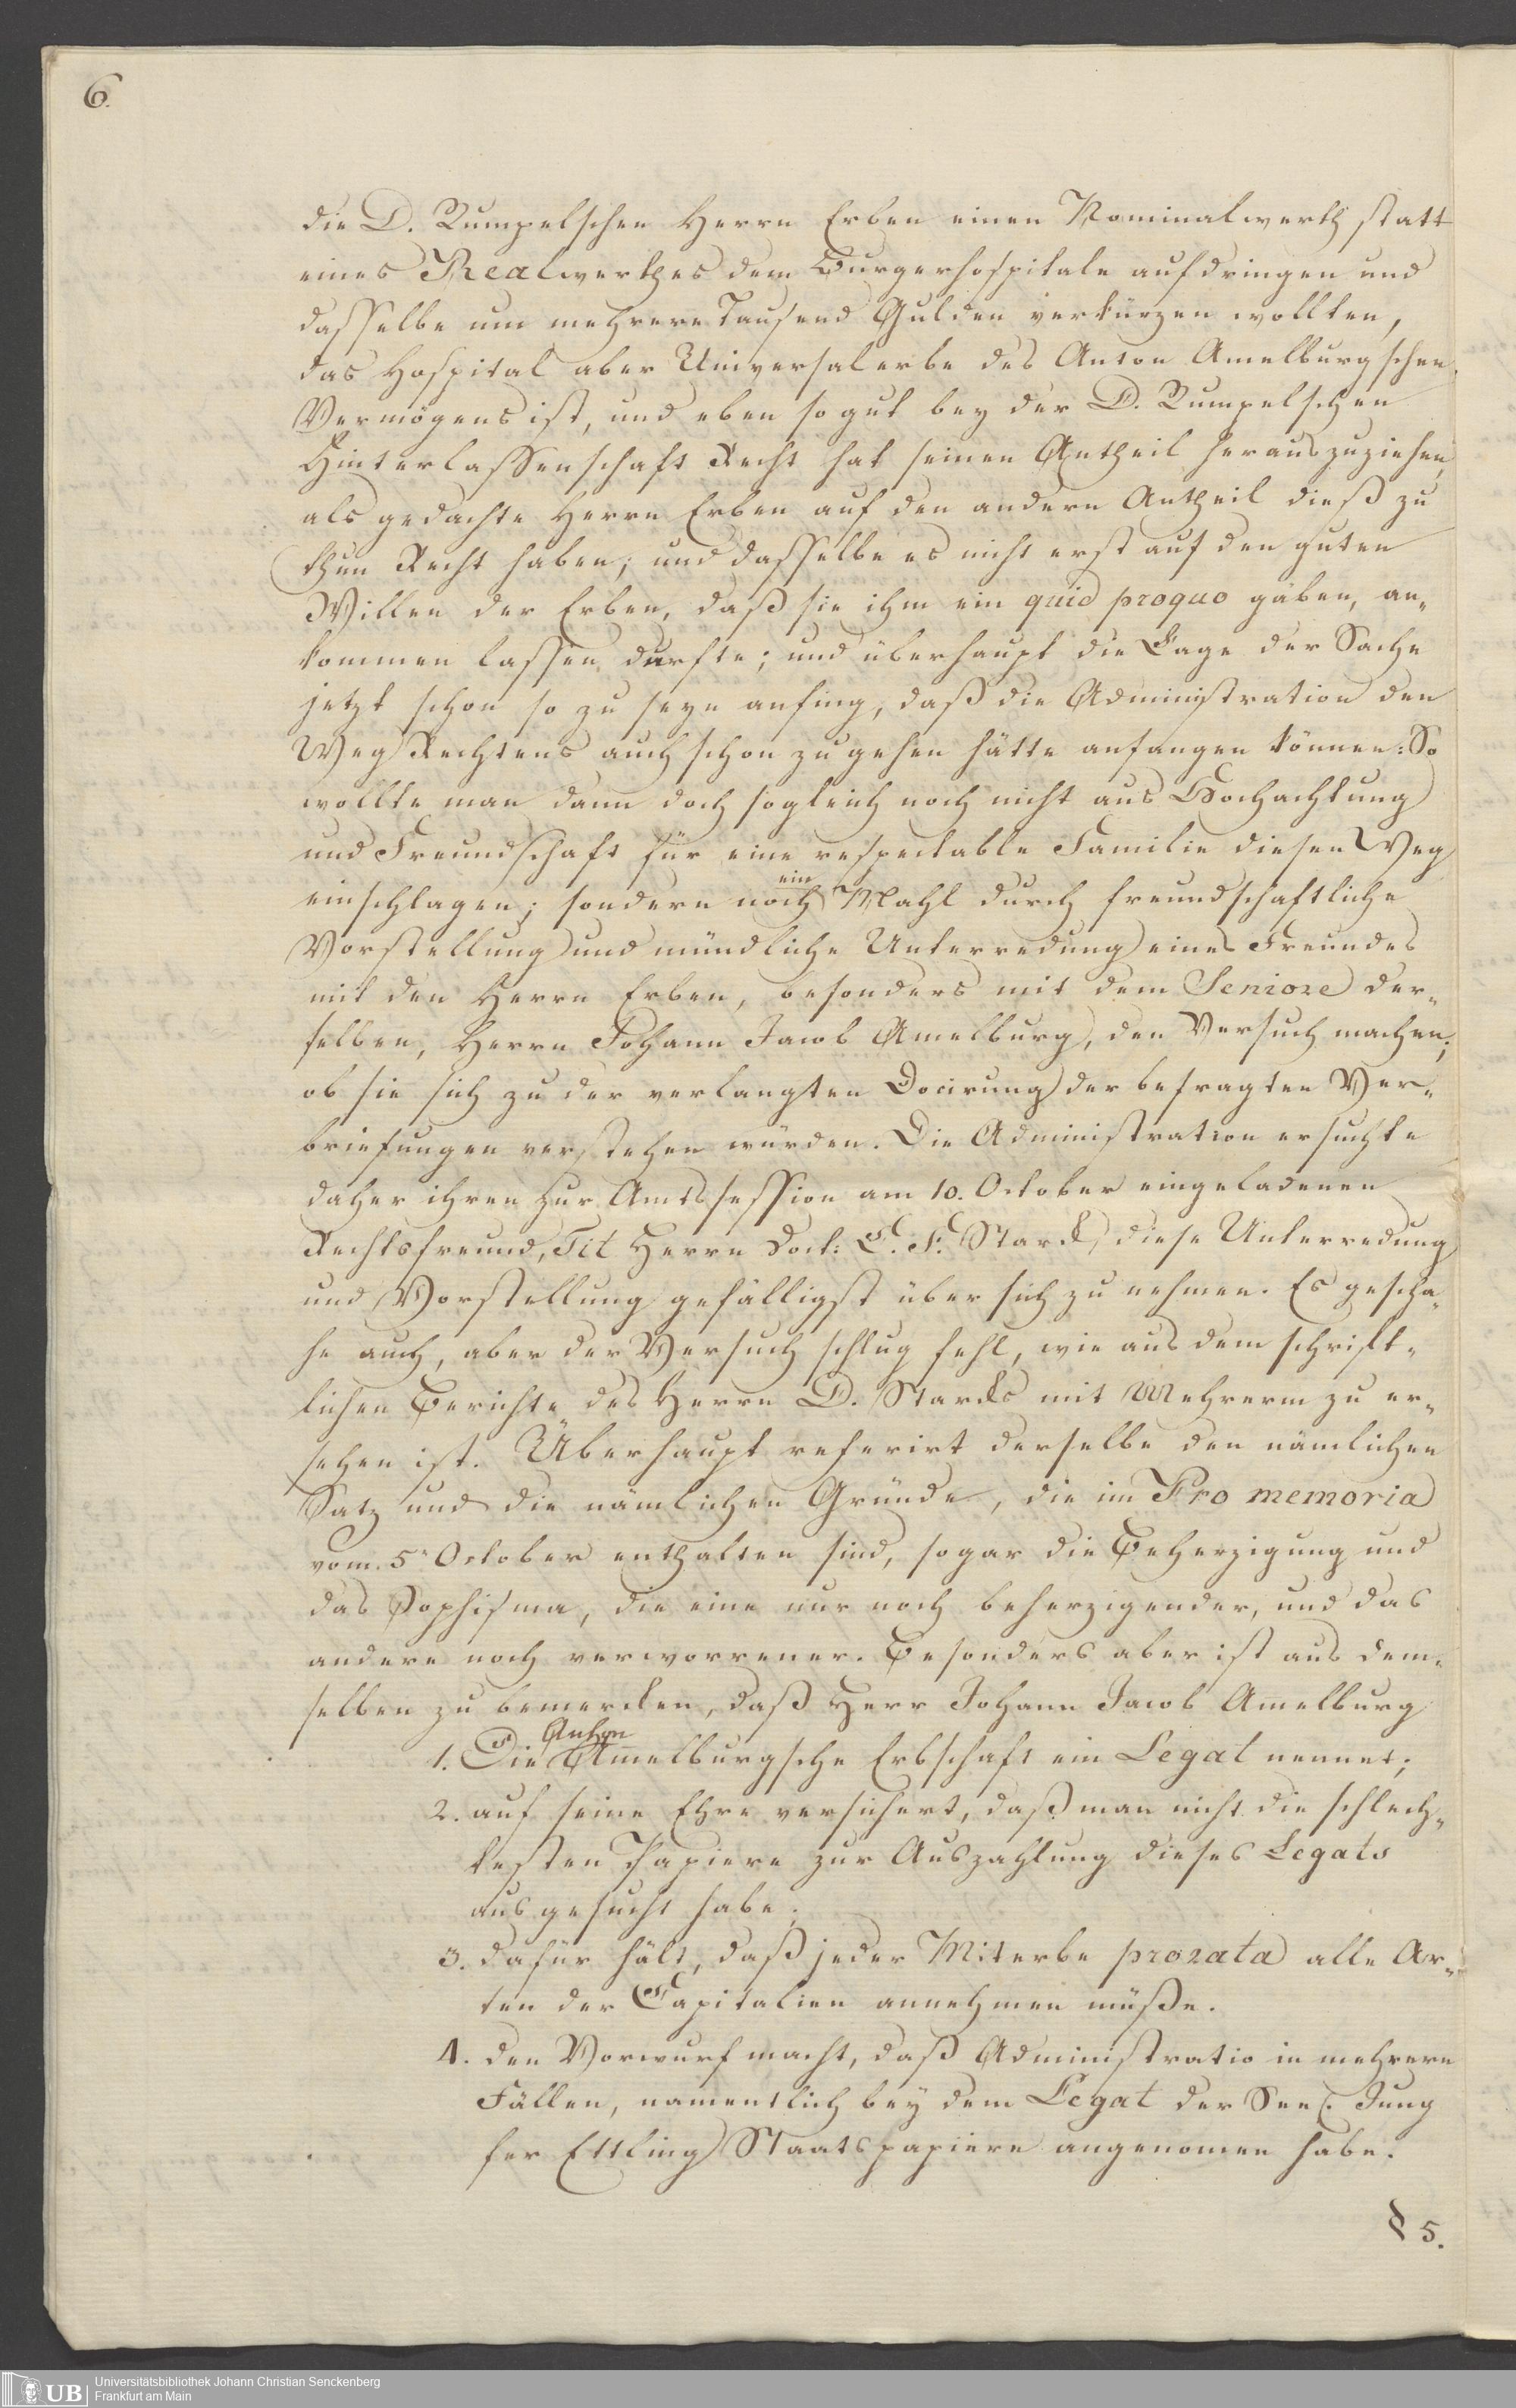 6.
die D. Rumpelschen Herrn Erben einen Nominalwerth statt
eines Realwerthes dem Burgerhospitale aufdringen und
dasselbe um mehrere Tausend Gulden verkürzen wollten,
das Hospital aber Universalerbe des Anton Amelburgschen
Vermögens ist, und eben so gut bey der D. Rumpelschen
Hinterlassenschaft Recht hat seinen Antheil herauszuziehen,
als gedachte Herrn Erben auf den andern Antheil dieß zu
thun Recht haben; und dasselbe es nicht erst auf den guten
Willen der Erben, daß sie ihm ein quid proquo gäben, an„
kommen lassen durfte; und überhaupt die Lage der Sache
jetzt schon so zu seyn anfing, daß die Administration den
Weg Rechtens auch schon zu gehen hätte anfangen können: So
wollte man dann doch sogleich noch nicht aus Hochachtung
und Freundschaft für eine respectable Familie diesen Weg
einschlagen; sondern noch ein Mahl durch freundschaftliche
Vorstellung und mündliche Unterredung eines Freundes
mit den Herrn Erben, besonders mit dem Seniore der„
selben, Herrn Johann Jacob Amelburg, den Versuch machen;
ob sie sich zu der verlangten Docirung der befragten Ver„
briefungen verstehen würden. Die Administration ersuchte
daher ihren zur Amtssession am 10. October eingeladenen
Rechtsfreund, Tit Herrn Doct: C. F. Starck, diese Unterredung
und Vorstellung gefälligst über sich zu nehmen. Es gescha„
he auch, aber der Versuch schlug fehl, wie aus dem schrift„
lichen Berichte des Herrn D. Starcks mit Mehrerm zu er„
sehen ist. Überhaupt referirt derselbe den nämlichen
Satz und die nämlichen Gründe, die im Pro memoria
vom 5n October enthalten sind, sogar die Beherzigung und
das Sophisma, die eine nur noch beherzigender, und das
andere noch verworrener. Besonders aber ist aus dem„
selben zu bemercken, daß Herr Johann Jacob Amelburg
1. Die Anton Amelburgsche Erbschaft ein Legat nennet;
2. auf seine Ehre versichert, daß man nicht die schlech„
testen Papiere zur Auszahlung dieses Legats
ausgesucht habe;
3. dafür hält, daß jeder Miterbe prorata alle Ar„
ten der Capitalien annehmen müße.
4. den Vorwurf macht, daß Administratio in mehrern
Fällen, namentlich bey dem Legat der Seel. Jung
fer Ettling Staatspapiere angenomen habe.
§ 5.
UB Universitätsbibliothek Johann Christian Senckenberg
Frankfurt am Main